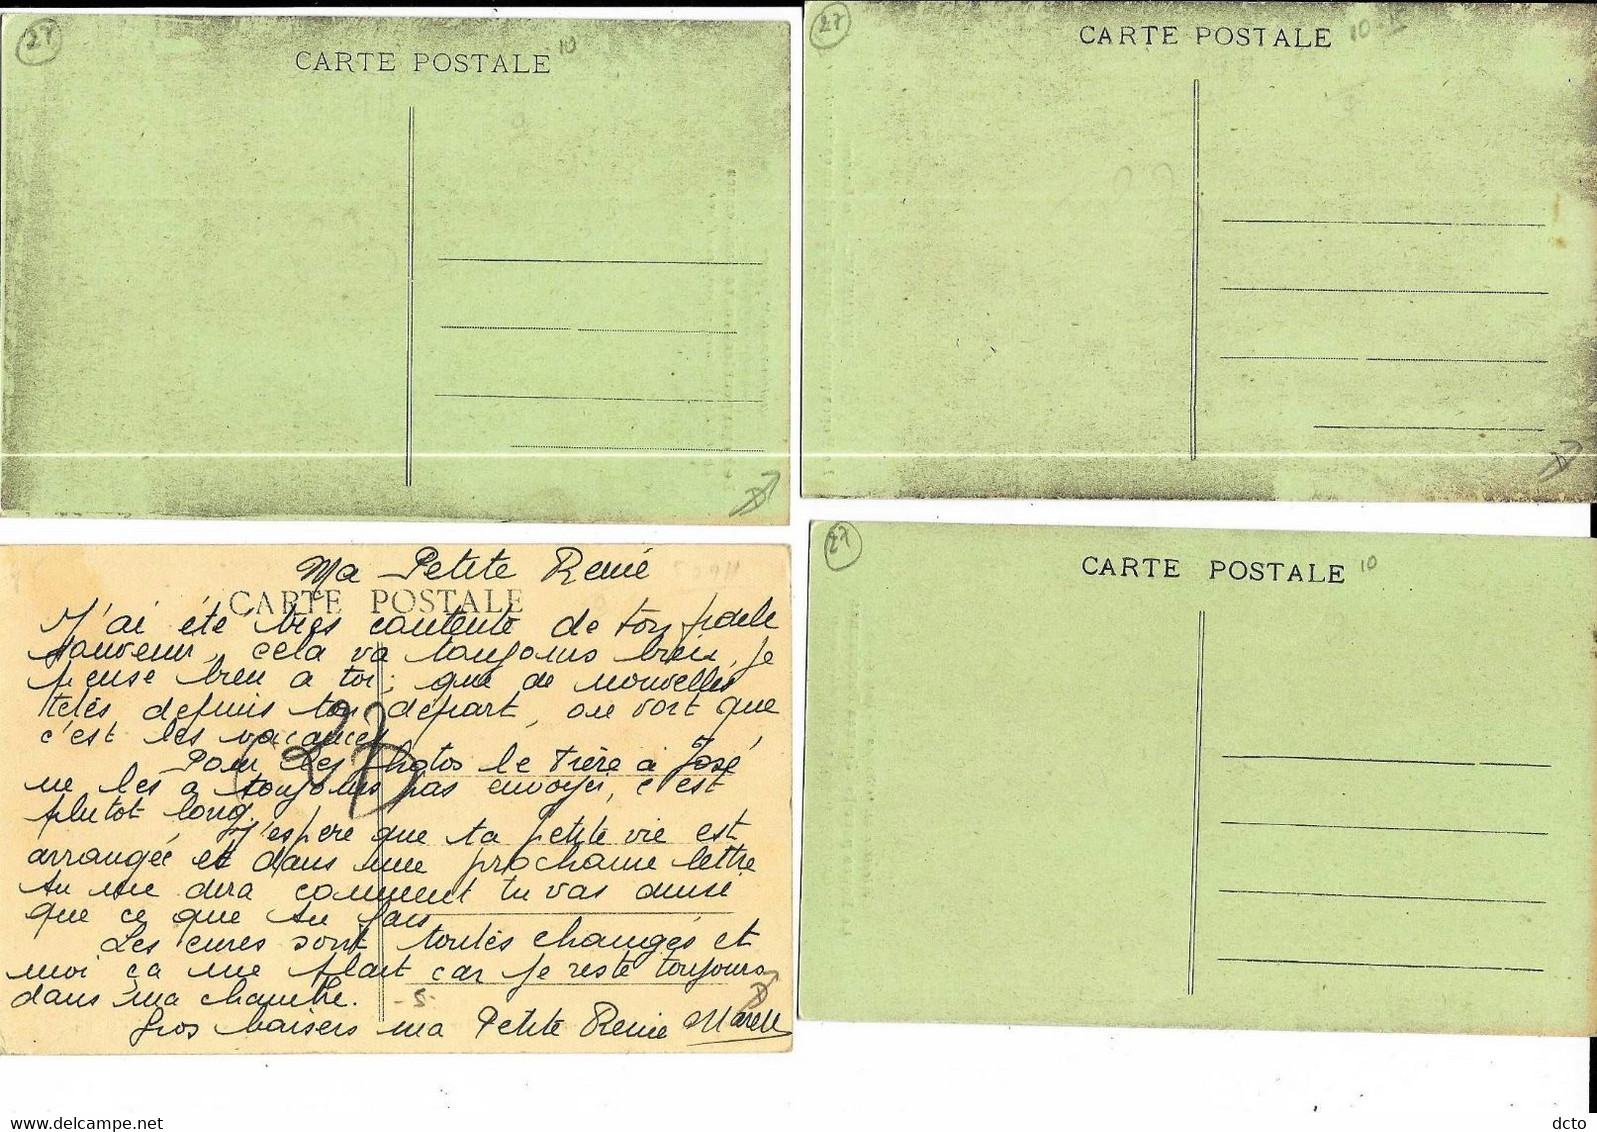 27
CARTE POSTALE
10
27
CARTE POSTALE
10-
Ma Petite Renié
CARTE POSTALE
J'ai été très contente de ton
souvenir, cela va toujours bien, je
pense bien a toi; que de nouvelles
depuis ton départ, on voit que
c'est les vacances
Pour les photos le Frère à José
ne les a toujours pas envoyer, c'est
plutot long.
J'espere que ta petite vie est
arrangée et dans une prochaine lettre
tu me dira comment tu vas ainsi
que ce que tu fais
Les cures sont toutes changés et
moi ça me plait car je reste toujours
dans ma chambre.
-5-
Gros baisers ma Petite Renie
27
CARTE POSTALE
10
delcampe.net
dcto